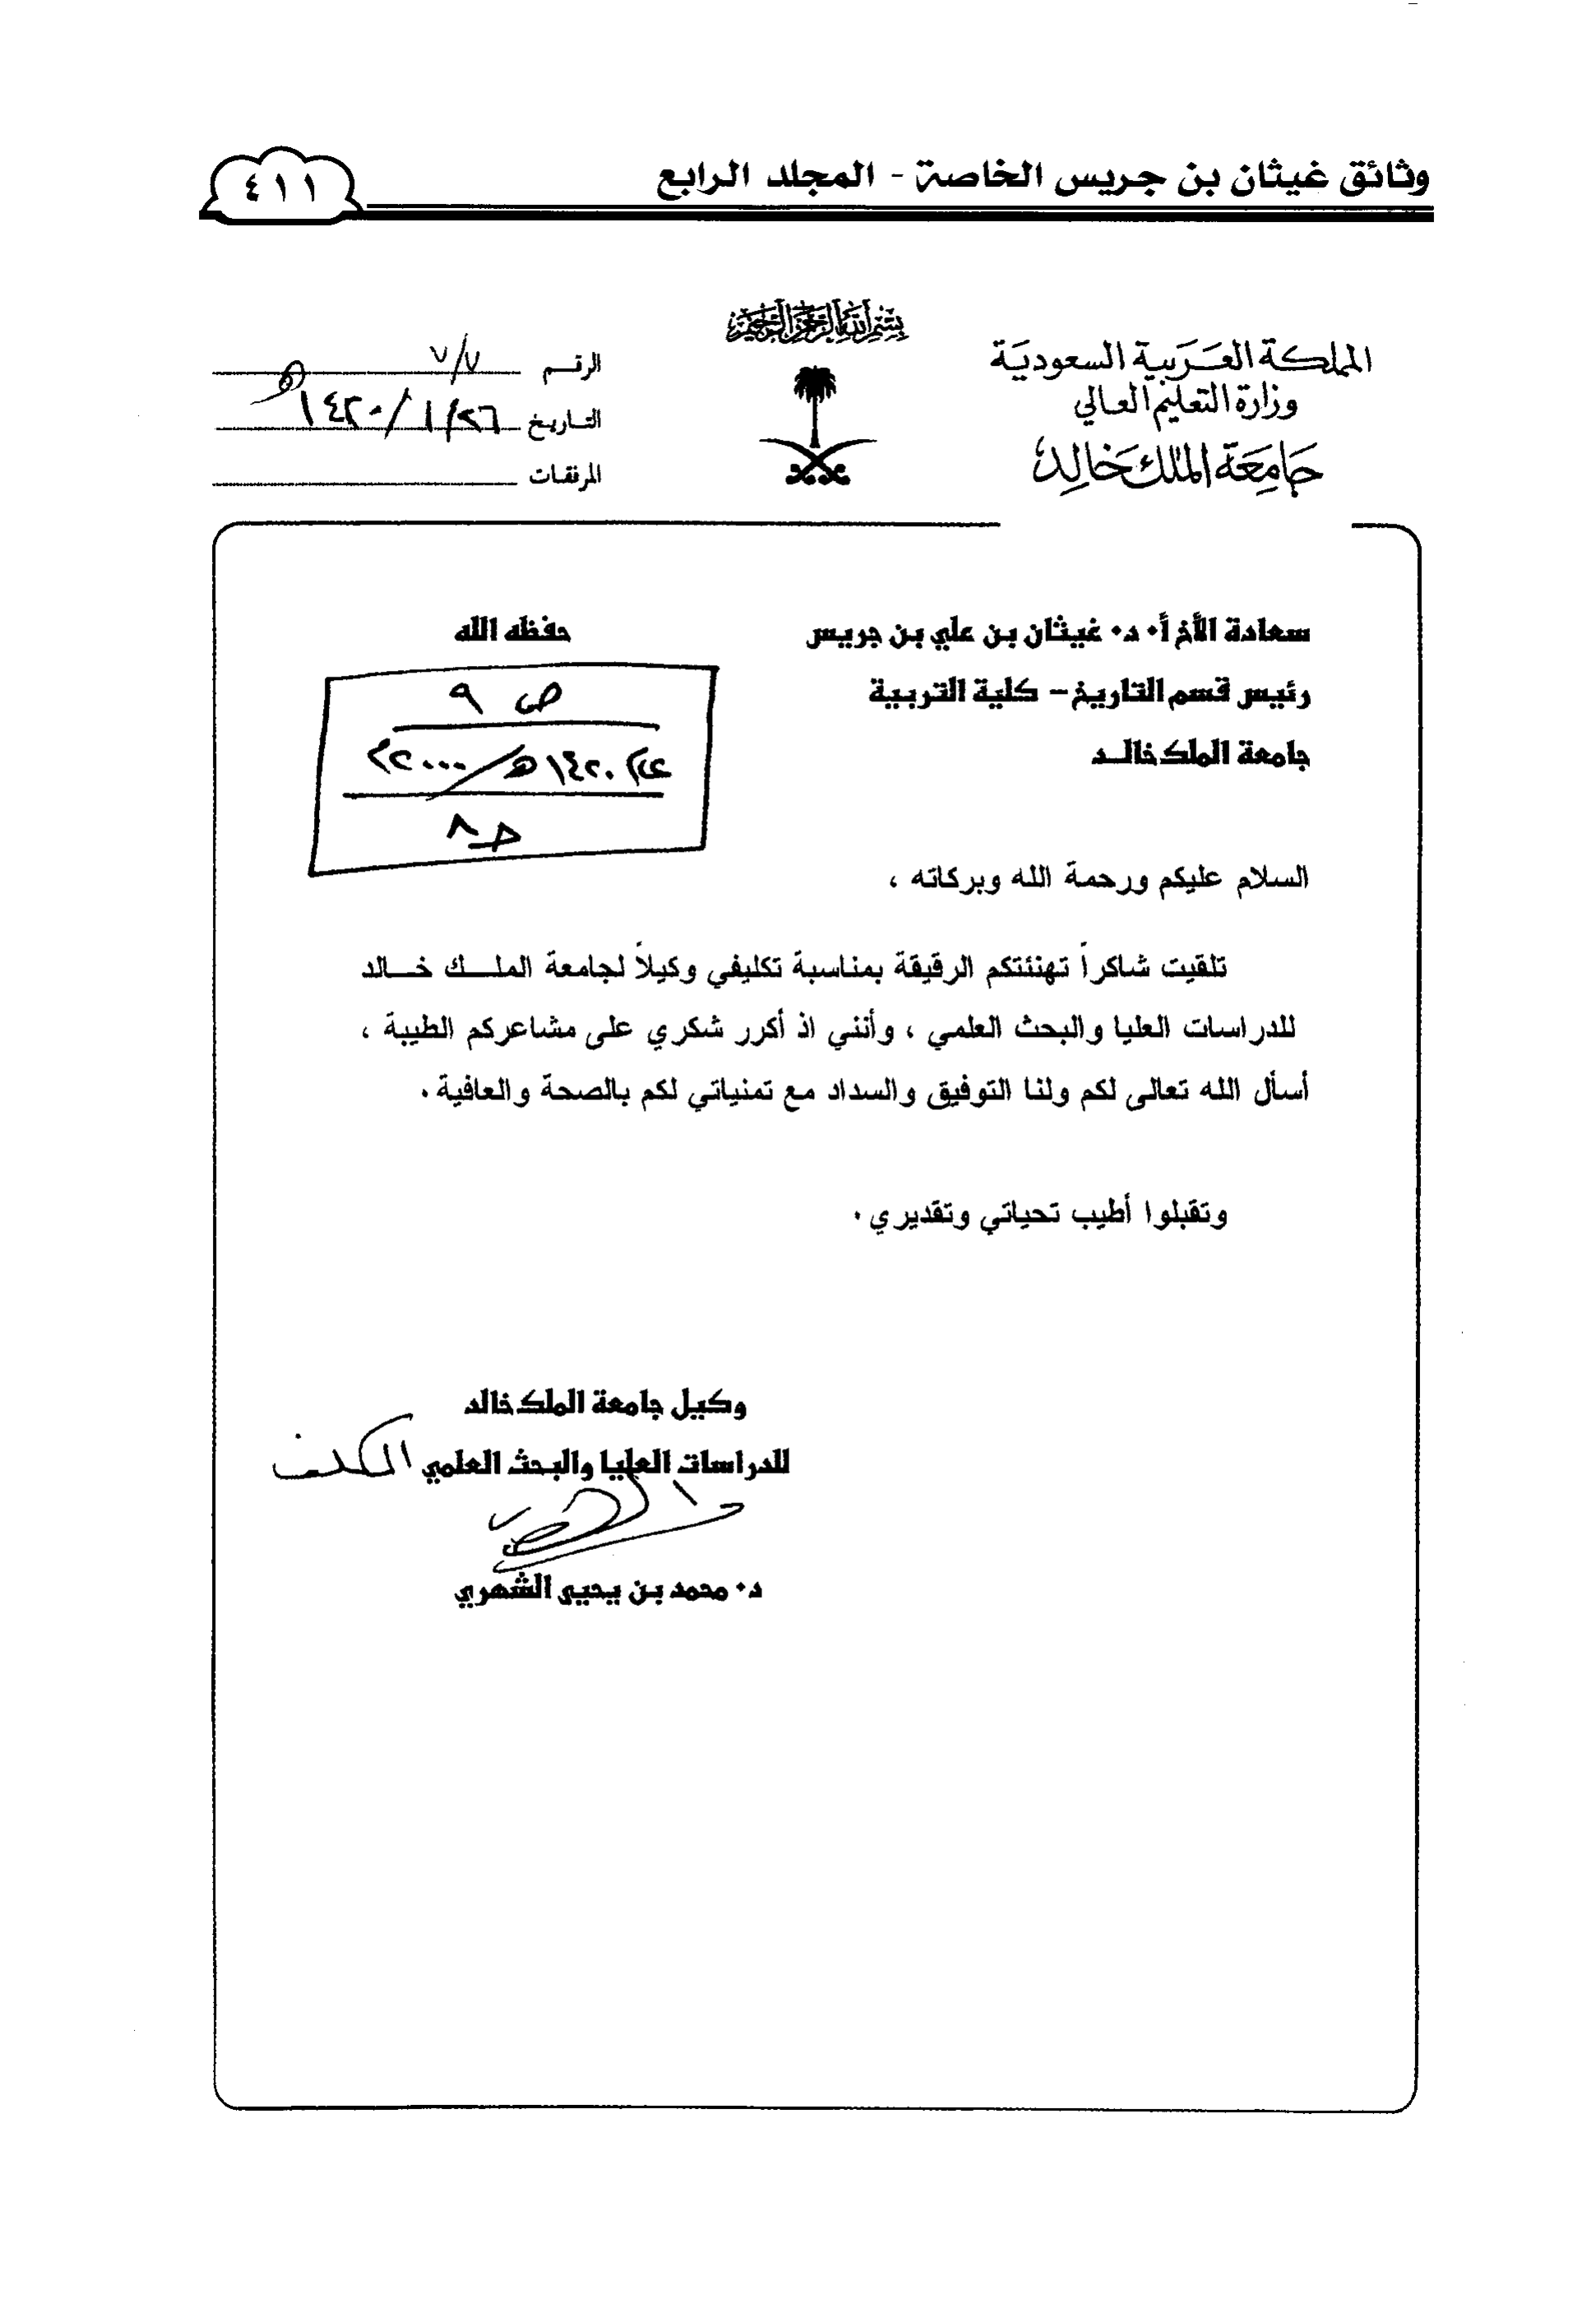 وثائق غيثان بن جريس الخاصة - المجلد الرابع
٤١١
بسم الله الرحمن الرحيم
المملكة العربية السعودية
وزارة التعليم العالي
جامعة الملك خالد
الرقم ٧/٧
التاريخ ١٤٢٠/١/٢٦هـ
المرفقات
سعادة الأخ أ٠ د٠ غيثان بن علي بن جريس حفظه الله
رئيس قسم التاريخ – كلية التربية
جامعة الملك خالد
ص ٩
١٤٢٠هـ/٢٠٠٠م
السلام عليكم ورحمة الله وبركاته ،
تلقيت شاكراً تهنئتكم الرقيقة بمناسبة تكليفي وكيلاً لجامعة الملك خالد
للدراسات العليا والبحث العلمي ، وأنني اذ أكرر شكري على مشاعركم الطيبة ،
أسأل الله تعالى لكم ولنا التوفيق والسداد مع تمنياتي لكم بالصحة والعافية ٠
وتقبلوا أطيب تحياتي وتقديري ٠
وكيل جامعة الملك خالد
للدراسات العليا والبحث العلمي المكلف
د٠ محمد بن يحيى الشهري